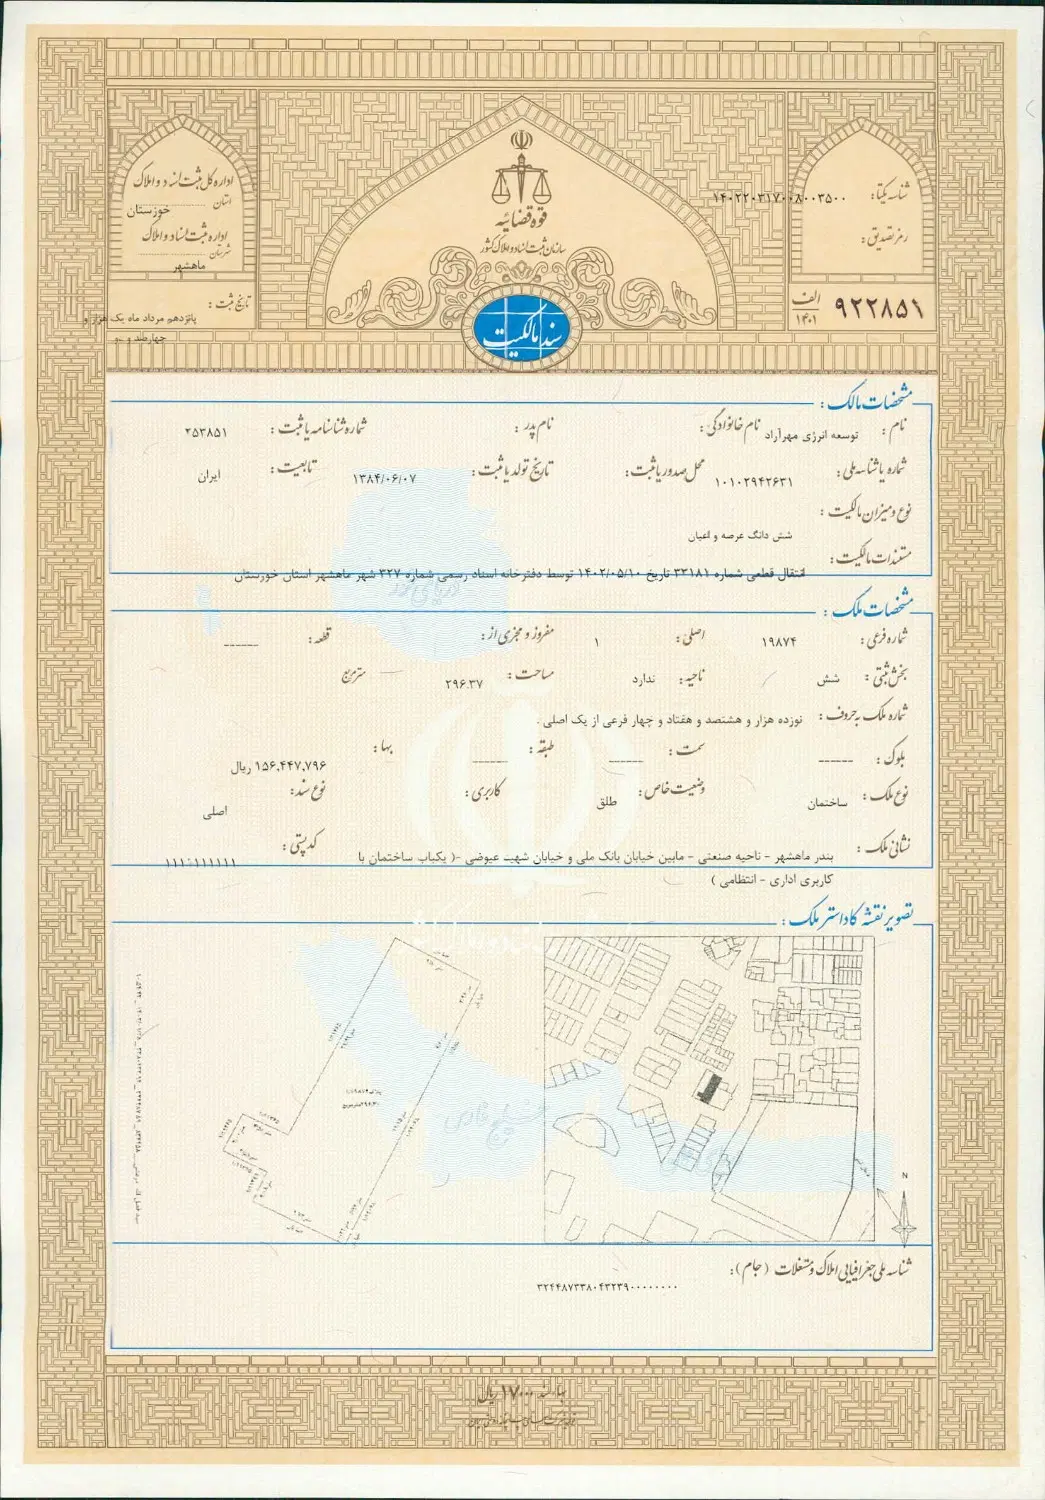 قوه قضائیه
سازمان ثبت اسناد و املاک کشور
سند مالکیت
اداره کل ثبت اسناد و املاک
استان خوزستان
اداره ثبت اسناد و املاک
شهرستان ماهشهر
تاریخ ثبت :
پانزدهم مرداد ماه یک هزار و
چهارصد و دو
شناسه یکتا : ۱۴۰۲۲۰۳۱۷۰۰۸۰۰۳۵۰۰
رمز تصدیق :
۹۲۲۸۵۱ الف ۱۴۰۱
مشخصات مالک :
نام : توسعه انرژی مهرآراد نام خانوادگی : نام پدر : شماره شناسنامه یا ثبت : ۲۵۳۸۵۱
شماره یا شناسه ملی : ۱۰۱۰۲۹۴۲۶۳۱ محل صدور یا ثبت : تاریخ تولد یا ثبت : ۱۳۸۴/۰۶/۰۷ تابعیت : ایران
نوع و میزان مالکیت :
شش دانگ عرصه و اعیان
مستندات مالکیت :
انتقال قطعی شماره ۳۳۱۸۱ تاریخ ۱۴۰۲/۰۵/۱۰ توسط دفترخانه اسناد رسمی شماره ۳۲۷ شهر ماهشهر استان خوزستان
مشخصات ملک :
شماره فرعی : ۱۹۸۷۴ اصلی : ۱ مفروز و مجزی از : قطعه : ------
بخش ثبتی : شش ناحیه : ندارد مساحت : ۲۹۶.۳۷ مترمربع
شماره ملک به حروف : نوزده هزار و هشتصد و هفتاد و چهار فرعی از یک اصلی .
بلوک : ------ سمت : ------ طبقه : ------ بها : ۱۵۶,۴۴۷,۷۹۶ ریال
نوع ملک : ساختمان وضعیت خاص : طلق کاربری : نوع سند : اصلی
نشانی ملک : بندر ماهشهر - ناحیه صنعتی - مابین خیابان بانک ملی و خیابان شهید عیوضی -( یکباب ساختمان با
کاربری اداری - انتظامی )
کد پستی : ۱۱۱۱۱۱۱۱۱۱
تصویر نقشه کاداستر ملک :
خلیج فارس
N
شناسه ملی جغرافیایی املاک و مستغلات (جام) :
۳۲۴۴۸۷۳۳۸۰۴۳۲۳۹۰۰۰۰۰۰۰۰
بهاء سند ۱۷۰۰۰ ریال